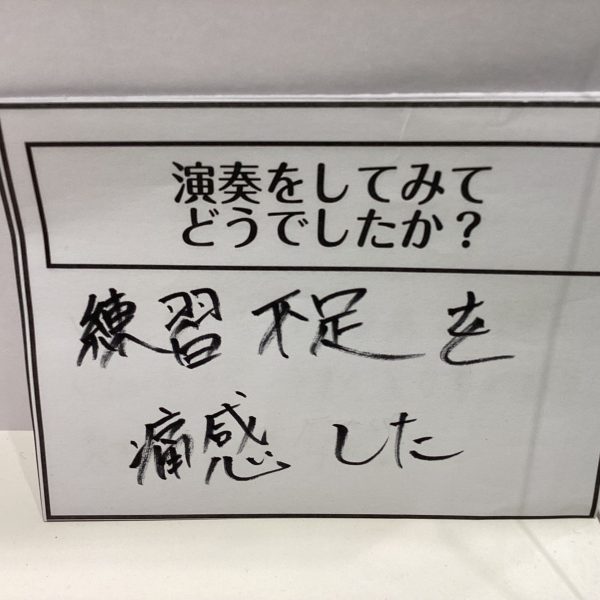 演奏をしてみて
どうでしたか？
練習不足を
痛感した